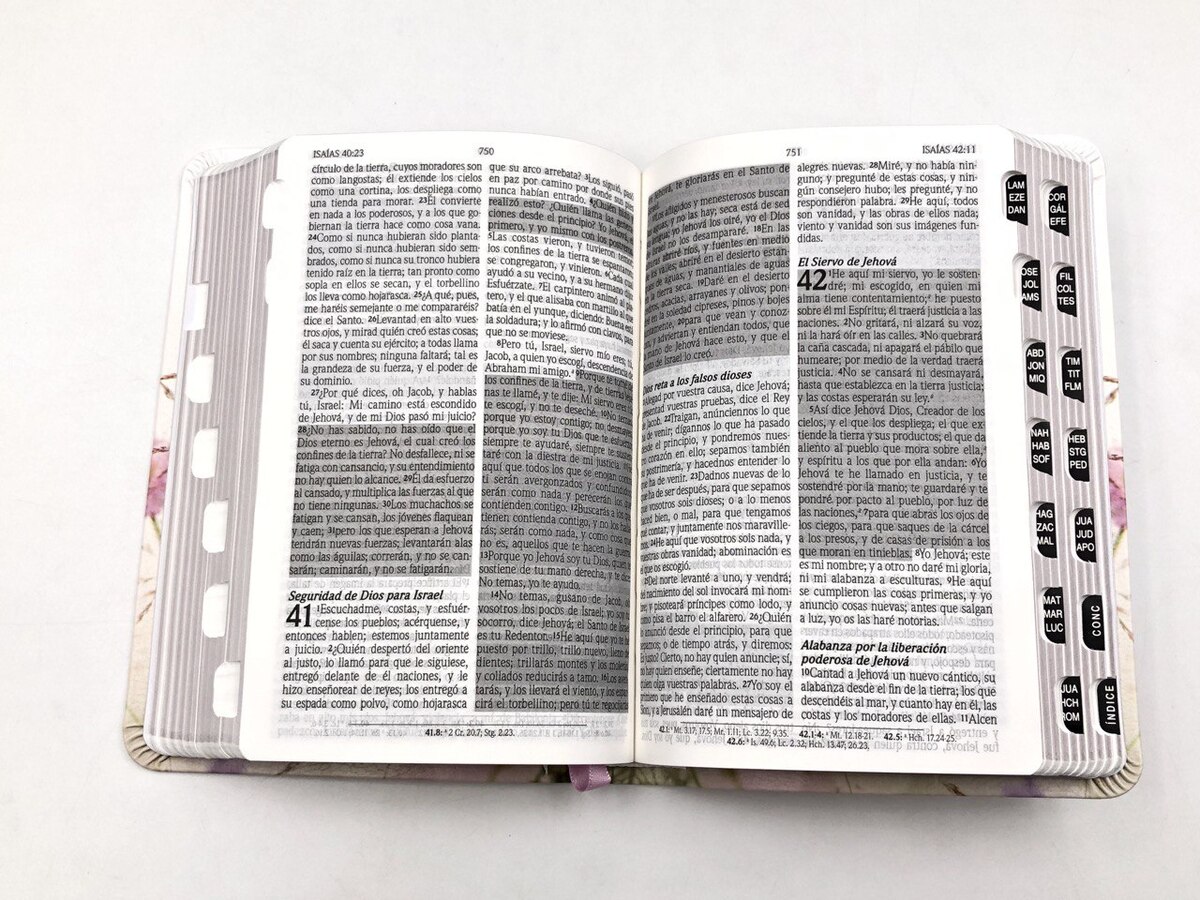 ISAÍAS 40:23
750
círculo de la tierra, cuyos moradores son
como langostas; él extiende los cielos
como una cortina, los despliega como
una tienda para morar. 23Él convierte
en nada a los poderosos, y a los que go-
biernan la tierra hace como cosa vana.
24Como si nunca hubieran sido planta-
dos, como si nunca hubieran sido sem-
brados, como si nunca su tronco hubiera
tenido raíz en la tierra; tan pronto como
sopla en ellos se secan, y el torbellino
los lleva como hojarasca. 25¿A qué, pues,
me haréis semejante o me compararéis?
dice el Santo. 26Levantad en alto vues-
tros ojos, y mirad quién creó estas cosas;
él saca y cuenta su ejército; a todas llama
por sus nombres; ninguna faltará; tal es
la grandeza de su fuerza, y el poder de
su dominio.
27¿Por qué dices, oh Jacob, y hablas
tú, Israel: Mi camino está escondido
de Jehová, y de mi Dios pasó mi juicio?
28¿No has sabido, no has oído que el
Dios eterno es Jehová, el cual creó los
confines de la tierra? No desfallece, ni se
fatiga con cansancio, y su entendimiento
no hay quien lo alcance. 29Él da esfuerzo
al cansado, y multiplica las fuerzas al que
no tiene ningunas. 30Los muchachos se
fatigan y se cansan, los jóvenes flaquean
y caen; 31pero los que esperan a Jehová
tendrán nuevas fuerzas; levantarán alas
como las águilas; correrán, y no se can-
sarán; caminarán, y no se fatigarán.
Seguridad de Dios para Israel
41 1Escuchadme, costas, y esfuér-
cense los pueblos; acérquense, y
entonces hablen; estemos juntamente
a juicio. 2¿Quién despertó del oriente
al justo, lo llamó para que le siguiese,
entregó delante de él naciones, y le
hizo enseñorear de reyes; los entregó a
su espada como polvo, como hojarasca
que su arco arrebata? 3Los siguió, pasó
en paz por camino por donde sus pies
nunca habían entrado. 4¿Quién hizo y
realizó esto? ¿Quién llama las genera-
ciones desde el principio? Yo Jehová, el
primero, y yo mismo con los postreros.
5Las costas vieron, y tuvieron temor;
los confines de la tierra se espantaron;
se congregaron, y vinieron. 6Cada cual
ayudó a su vecino, y a su hermano dijo:
Esfuérzate. 7El carpintero animó al pla-
tero, y el que alisaba con martillo al que
batía en el yunque, diciendo: Buena está
la soldadura; y lo afirmó con clavos, para
que no se moviese.
8Pero tú, Israel, siervo mío eres; tú,
Jacob, a quien yo escogí, descendencia de
Abraham mi amigo.a 9Porque te tomé de
los confines de la tierra, y de tierras leja-
nas te llamé, y te dije: Mi siervo eres tú;
te escogí, y no te deseché. 10No temas,
porque yo estoy contigo; no desmayes,
porque yo soy tu Dios que te esfuerzo;
siempre te ayudaré, siempre te susten-
taré con la diestra de mi justicia. 11He
aquí que todos los que se enojan contra
ti serán avergonzados y confundidos;
serán como nada y perecerán los que
contienden contigo. 12Buscarás a los que
tienen contienda contigo, y no los halla-
rás; serán como nada, y como cosa que
no es, aquellos que te hacen la guerra.
13Porque yo Jehová soy tu Dios, quien te
sostiene de tu mano derecha, y te dice:
No temas, yo te ayudo.
14No temas, gusano de Jacob, oh
vosotros los pocos de Israel; yo soy tu
socorro, dice Jehová; el Santo de Israel
es tu Redentor. 15He aquí que yo te he
puesto por trillo, trillo nuevo, lleno de
dientes; trillarás montes y los molerás,
y collados reducirás a tamo. 16Los aven-
tarás, y los llevará el viento, y los espar-
cirá el torbellino; pero tú te regocijarás
41.8: a 2 Cr. 20.7; Stg. 2.23.
751
ISAÍAS 42:11
Jehová, te gloriarás en el Santo de
los afligidos y menesterosos buscan
aguas, y no las hay; seca está de sed
Jehová los oiré, yo el Dios
Israel no los desampararé. 18En las
abriré ríos, y fuentes en medio
los valles; abriré en el desierto estan-
de aguas, y manantiales de aguas
tierra seca. 19Daré en el desierto
acacias, arrayanes y olivos; pon-
en la soledad cipreses, pinos y bojes
20para que vean y conoz-
y adviertan y entiendan todos, que
mano de Jehová hace esto, y que el
de Israel lo creó.
Dios reta a los falsos dioses
Alegad por vuestra causa, dice Jehová;
presentad vuestras pruebas, dice el Rey
Jacob. 22Traigan, anúnciennos lo que
de venir; dígannos lo que ha pasado
desde el principio, y pondremos nues-
corazón en ello; sepamos también
postrimería, y hacednos entender lo
ha de venir. 23Dadnos nuevas de lo
que ha de ser después, para que sepamos
vosotros sois dioses; o a lo menos
haced bien, o mal, para que tengamos
que contar, y juntamente nos maraville-
24He aquí que vosotros sois nada, y
vuestras obras vanidad; abominación es
que os escogió.
25Del norte levanté a uno, y vendrá;
del nacimiento del sol invocará mi nom-
bre; y pisoteará príncipes como lodo, y
como pisa el barro el alfarero. 26¿Quién
anunció desde el principio, para que
sepamos; o de tiempo atrás, y diremos:
Es justo? Cierto, no hay quien anuncie; sí,
no hay quien enseñe; ciertamente no hay
quien oiga vuestras palabras. 27Yo soy el
primero que he enseñado estas cosas a
Sion, y a Jerusalén daré un mensajero de
alegres nuevas. 28Miré, y no había nin-
guno; y pregunté de estas cosas, y nin-
gún consejero hubo; les pregunté, y no
respondieron palabra. 29He aquí, todos
son vanidad, y las obras de ellos nada;
viento y vanidad son sus imágenes fun-
didas.
El Siervo de Jehová
42 1He aquí mi siervo, yo le sosten-
dré; mi escogido, en quien mi
alma tiene contentamiento;a he puesto
sobre él mi Espíritu; él traerá justicia a las
naciones. 2No gritará, ni alzará su voz,
ni la hará oír en las calles. 3No quebrará
la caña cascada, ni apagará el pábilo que
humeare; por medio de la verdad traerá
justicia. 4No se cansará ni desmayará,
hasta que establezca en la tierra justicia;
y las costas esperarán su ley.a
5Así dice Jehová Dios, Creador de los
cielos, y el que los despliega; el que ex-
tiende la tierra y sus productos; el que da
aliento al pueblo que mora sobre ella,a
y espíritu a los que por ella andan: 6Yo
Jehová te he llamado en justicia, y te
sostendré por la mano; te guardaré y te
pondré por pacto al pueblo, por luz de
las naciones,a 7para que abras los ojos de
los ciegos, para que saques de la cárcel
a los presos, y de casas de prisión a los
que moran en tinieblas. 8Yo Jehová; este
es mi nombre; y a otro no daré mi gloria,
ni mi alabanza a esculturas. 9He aquí
se cumplieron las cosas primeras, y yo
anuncio cosas nuevas; antes que salgan
a luz, yo os las haré notorias.
Alabanza por la liberación
poderosa de Jehová
10Cantad a Jehová un nuevo cántico, su
alabanza desde el fin de la tierra; los que
descendéis al mar, y cuanto hay en él, las
costas y los moradores de ellas. 11Alcen
42.1: a Mt. 3.17; 17.5; Mr. 1.11; Lc. 3.22; 9.35. 42.1-4: a Mt. 12.18-21. 42.5: a Hch. 17.24-25.
42.6: a Is. 49.6; Lc. 2.32; Hch. 13.47; 26.23.
LAM
EZE
DAN
COR
GÁL
EFE
OSE
JOL
AMS
FIL
COL
TES
ABD
JON
MIQ
TIM
TIT
FLM
NAH
HAB
SOF
HEB
STG
PED
HAG
ZAC
MAL
JUA
JUD
APO
MAT
MAR
LUC
CONC
JUA
HCH
ROM
ÍNDICE